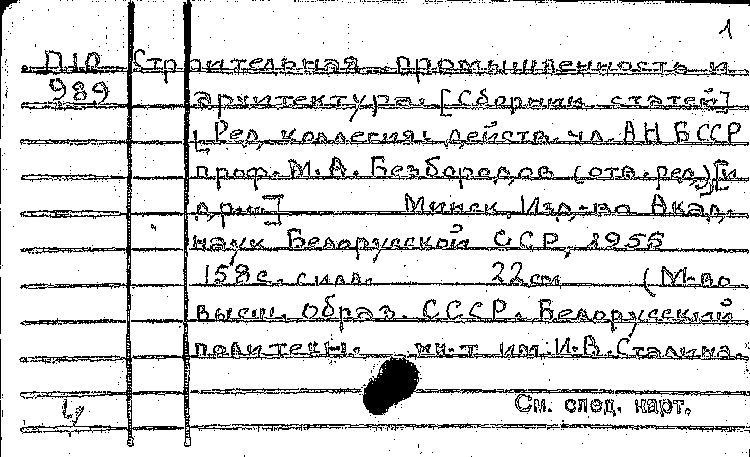 1
П10 Строительная промышленность и
989 архитектура. [Сборник статей]
[Ред. коллегия: действ. чл. АН БССР
проф. М. А. Безбородов (отв. ред.) [и
др.]] Минск, Изд-во Акад.
наук Белорусской ССР, 1955
158 с. с илл. 22 см (М-во
высш. образ. СССР. Белорусский
политехн. ин-т им. И. В. Сталина.
См. след. карт.